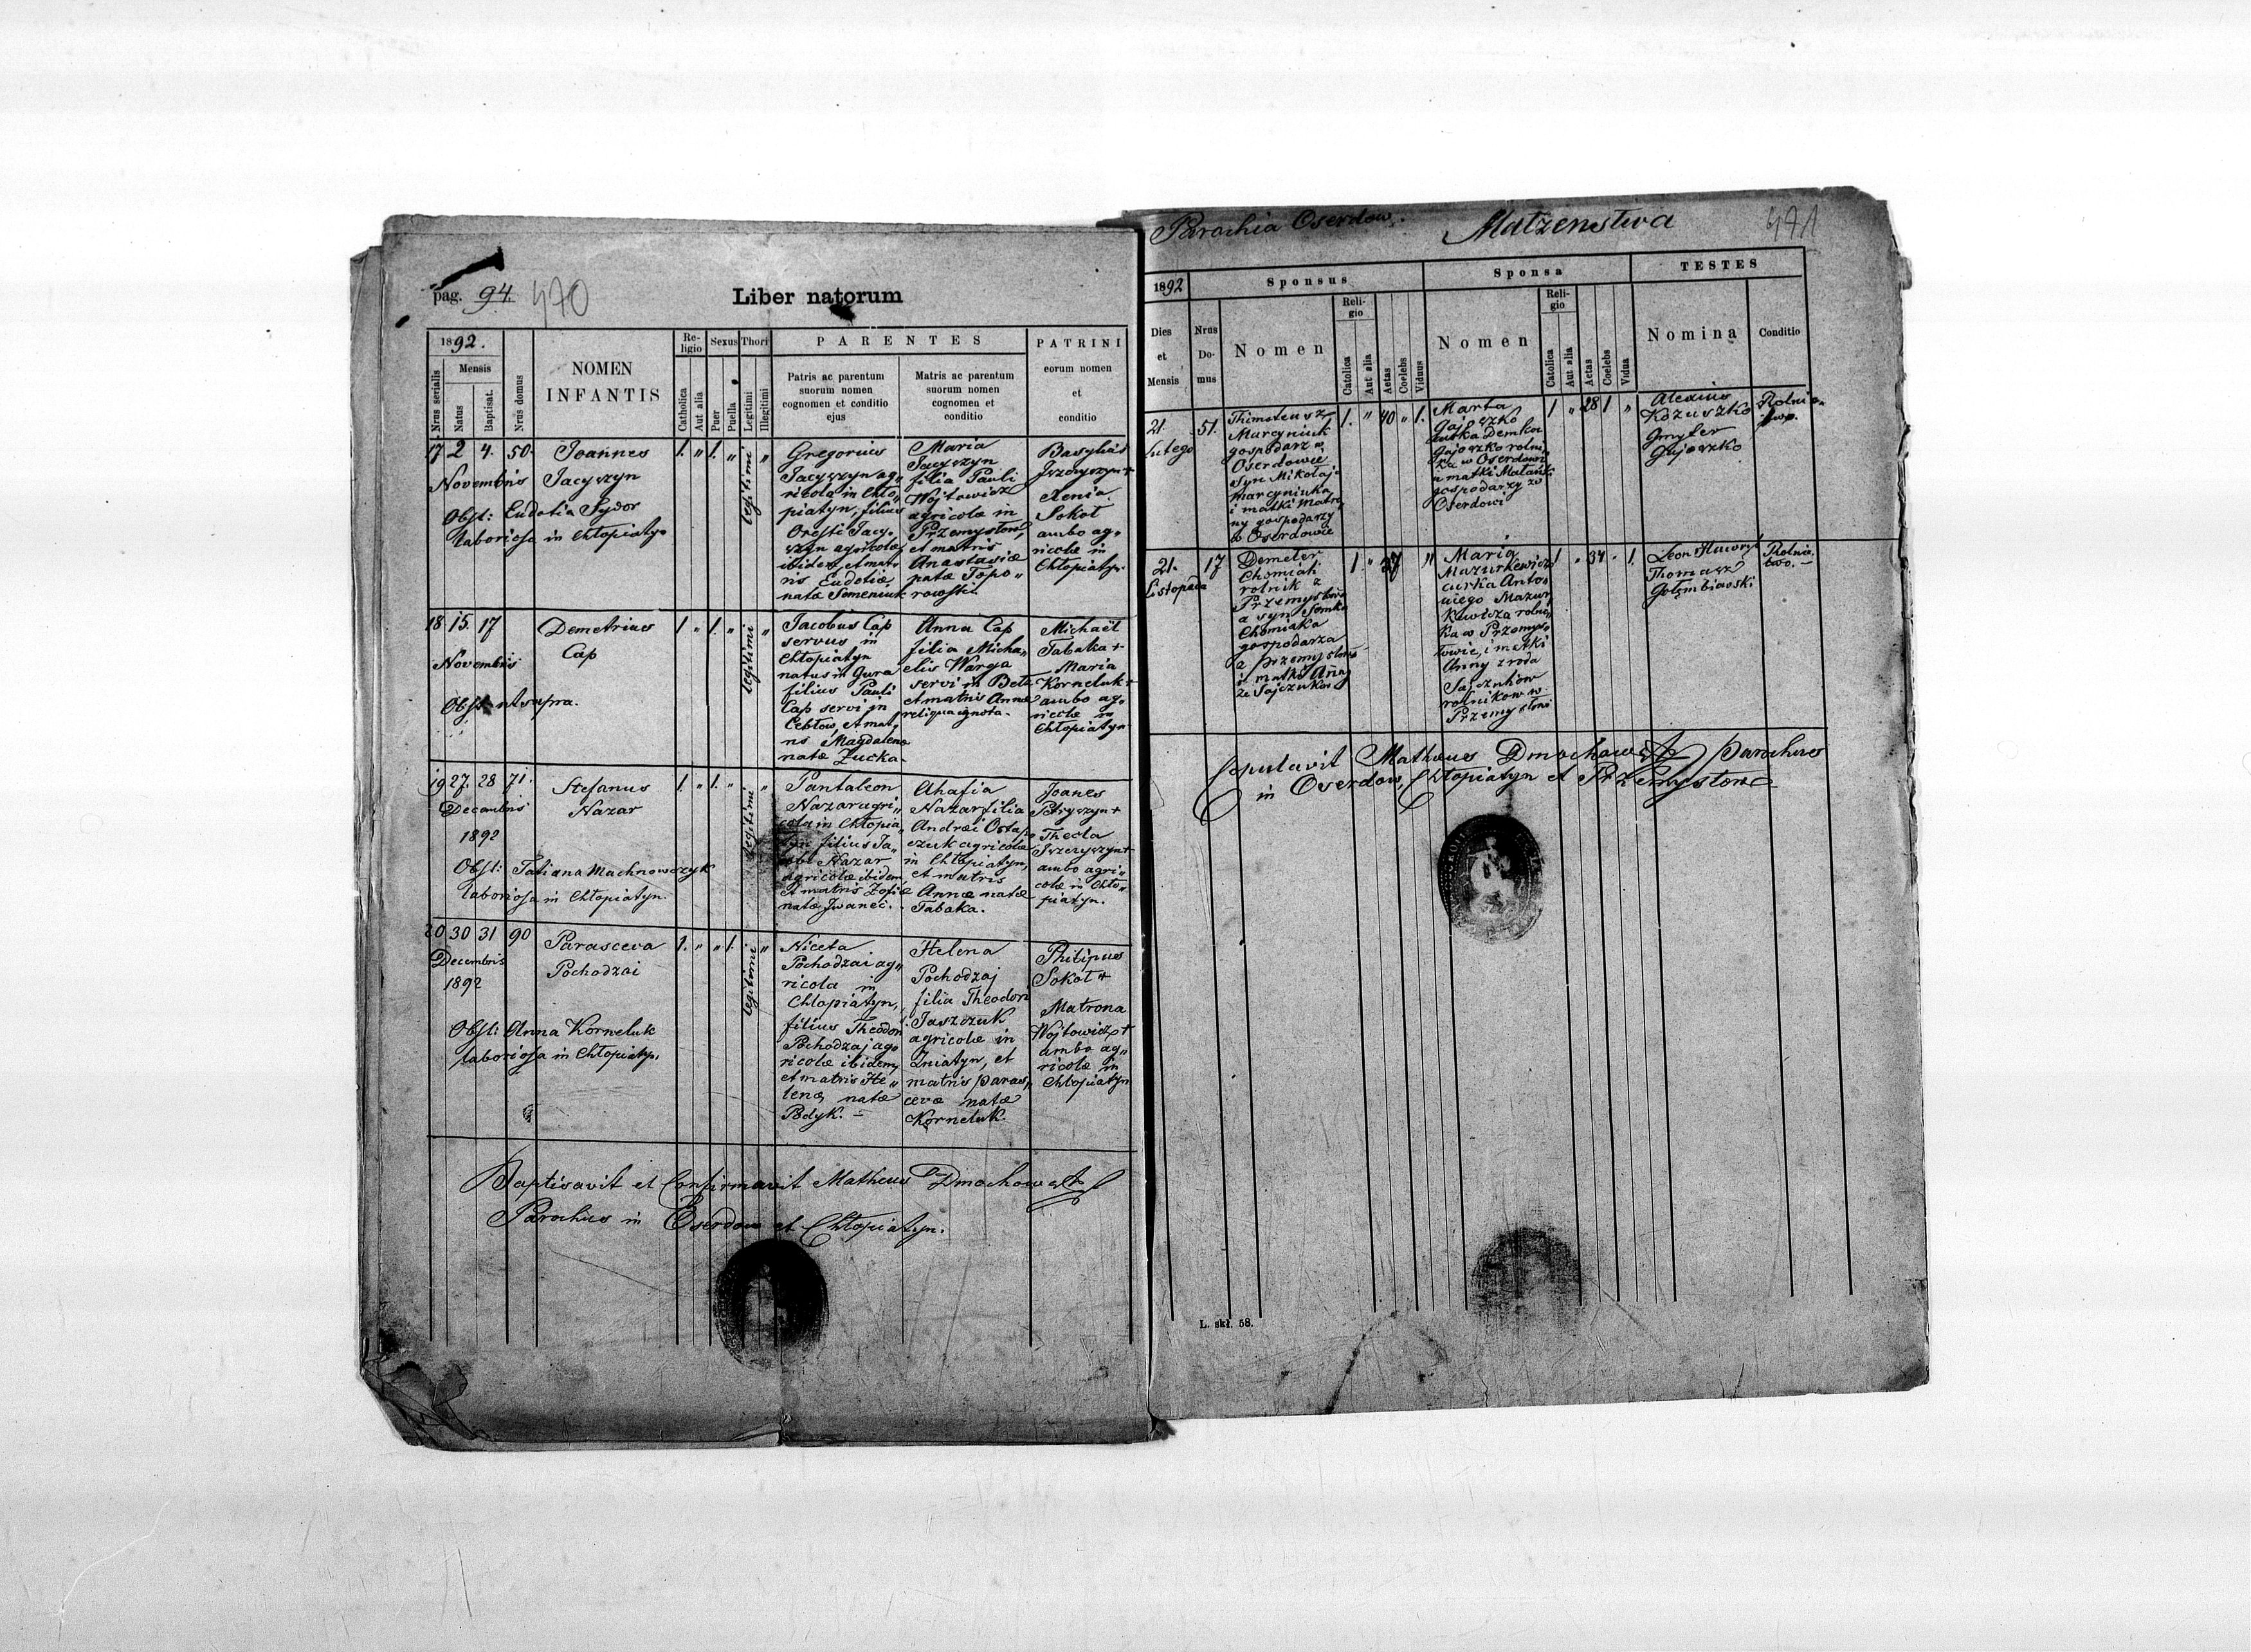 pag. 94. 470
Liber natorum
1892.
Mensis
Nrus serialis
Natus
Baptisat.
Nrus domus
NOMEN
INFANTIS
Religio
Catholica
Aut alia
Sexus
Puer
Puella
Thori
Legitimi
Illegitimi
PARENTES
Patris ac parentum
suorum nomen
cognomen et conditio
ejus
Matris ac parentum
suorum nomen
cognomen et
conditio
PATRINI
eorum nomen
et
conditio
17 2 4. 50.
Novembris
Joannes
Jacyszyn
Obst: Eudotia Sydor
laboriosa in Chłopiatyn
1. " 1. " legitimi "
Gregorius
Jacyszyn ag„
ricola in Chło„
piatyn, filius
Oresti Jacy„
szyn agricolæ
ibidem, et mat„
ris Eudotiæ
natæ Semeniuk
Maria
Jacyszyn
filia Pauli
Wojtowicz
agricolæ in
Przemysłow,
et matris
Anastasiæ
natæ Topo„
rowski.
Basylius
Jszczyszyn +
Xenia
Sokoł
ambo ag„
ricolæ in
Chłopiatyn
18 15. 17
Novembris
Demetrius
Cap
Obst. ut supra.
1 " 1. " legitimi "
Jacobus Cap
servus in
Chłopiatyn
natus in Gura
filius Pauli
Cap servi in
Cebłow, et mat„
ris Magdalenæ
natæ Zucka.
Anna Cap
filia Micha„
elis Warga
servi in Bełz
et matris Annæ
reliqua ignota.
Michaël
Tabaka +
Maria
Korneluk +
ambo ag„
ricolæ in
Chłopiatyn
19 27. 28 71.
Decembris
1892
Stefanus
Nazar
Obst: Tatiana Machnowczyk
laboriosa in Chłopiatyn.
1. " 1. " legitimi "
Pantaleon
Nazar agri„
cola in Chłopia„
tyn filius Ja„
cobi Nazar
agricolæ ibidem,
et matris Zofiæ
natæ Jwaneć.
Ahafia
Nazar filia
Andrei Ostap„
czuk agricolæ
in Chłopiatyn,
et matris
Annæ natæ
Tabaka.
Joanes
Thecla
Jszczyszyn +
ambo agri„
colæ in Chło„
piatyn.
20 30 31 90
Decembris
1892
Parasceva
Pochodzai
Obst: Anna Korneluk
laboriosa in Chłopiatyn,
1. " " 1. legitimi "
Niceta
Pochodzai ag„
ricola in
Chlopiatyn,
filius Theodori
Pochodzaj ag„
ricolæ ibidem,
et matris He„
lenæ natæ
Bdyk. —
Helena
Pochodzaj
filia Theodori
Jaszczuk
agricolæ in
Zniatyn, et
matris paras„
cevæ natæ
Korneluk.
Philipus
Sokoł +
Matrona
Wojtowicz +
ambo ag„
ricolæ in
Chłopiatyn
Baptisavit et Confirmavit Matheus Dmochowski
Parochus in Oserdow et Chłopiatyn.
Parochia Oserdow.
Małzenstwa
471
1892
Sponsus
Sponsa
TESTES
Dies
et
Mensis
Nrus
Domus
Nomen
Religio
Catolica
Aut alia
Aetas
Coelebs
Viduus
Nomen
Religio
Catolica
Aut alia
Aetas
Coelebs
Vidua
Nomina
Conditio
21.
Lutego
51.
Thimoteusz
Marcyniuk
gospodarz w
Oserdowie
syn Mikołaja
Marcyniuka
i matki Matro
ny gospodarzy
w Oserdowie
1. " 40 " 1.
Marta
Gajoszko
curka Demka
Gajoszko rolni„
ka w Oserdowi
gospodarzy w
Oserdowi
1 " 28 1 "
Alexius
Kozuszko
Gmyter
Gajoszko
21.
Listopada
17
Demeter
Chomiak
rolnik z
Przemysłowa
a syn Semka
Chomiaka
gospodarza
z przemysłowa
i matki Anny
ze Sajczukow
1 " 37 "
Maria
Mazurkewicz
curka Anto„
niego Mazur„
kewicza rolni„
ka w Przemys„
łowie, i matki
Anny zroda
Sajczukow
rolnikow w
Przemysłowi
1 " 34 " 1.
Thomasz
Gołembiowski
Rolnic
two. —
Copulavit Matheus Dmochowski parochus
in Oserdow, Chłopiatyn et Przemysłow
L. skł. 58.